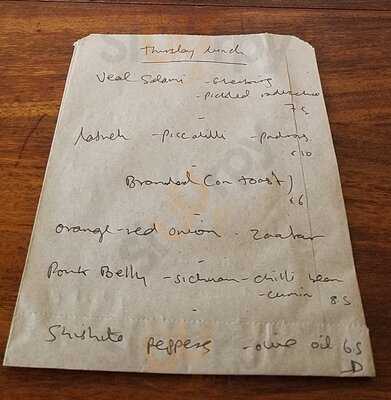 Thursday lunch
Veal Salami -
- pickled radicchio
75
- piccalilli - padron
£10
Brandad (on toast)
£6
orange - red onion - Zaatar
Pork Belly - sichuan - chilli bean
- cumin 85
Shishito peppers - olive oil 65